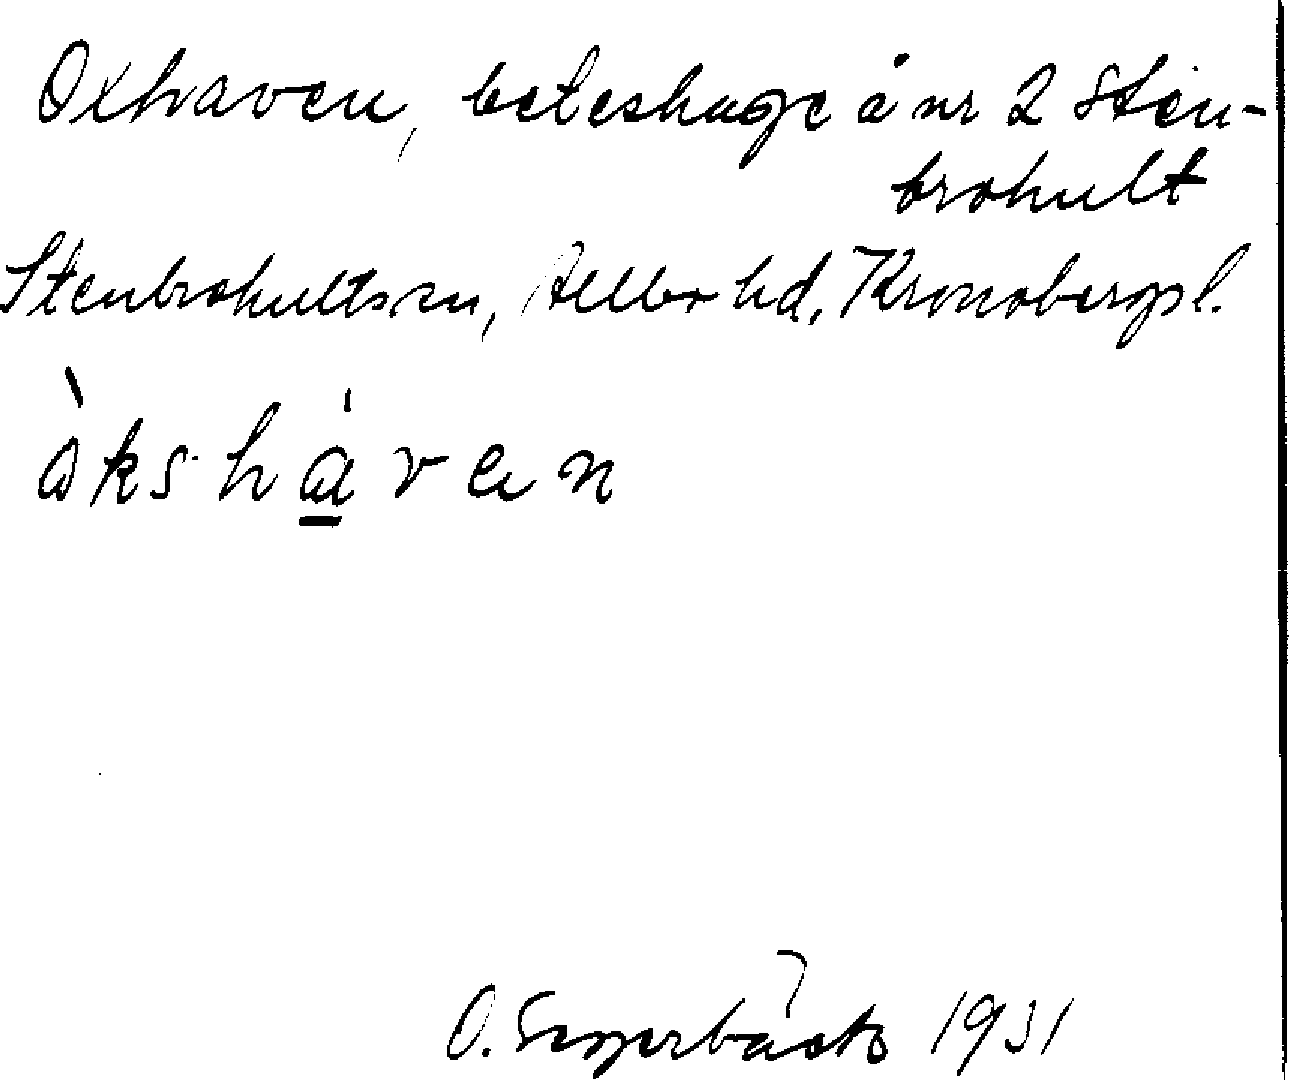 Oxhaven, beteshage å nr 2 Sten-
brohult
Stenbrohults sn, Allbo hd, Kronobergs l.
åkshaven
O. 1931